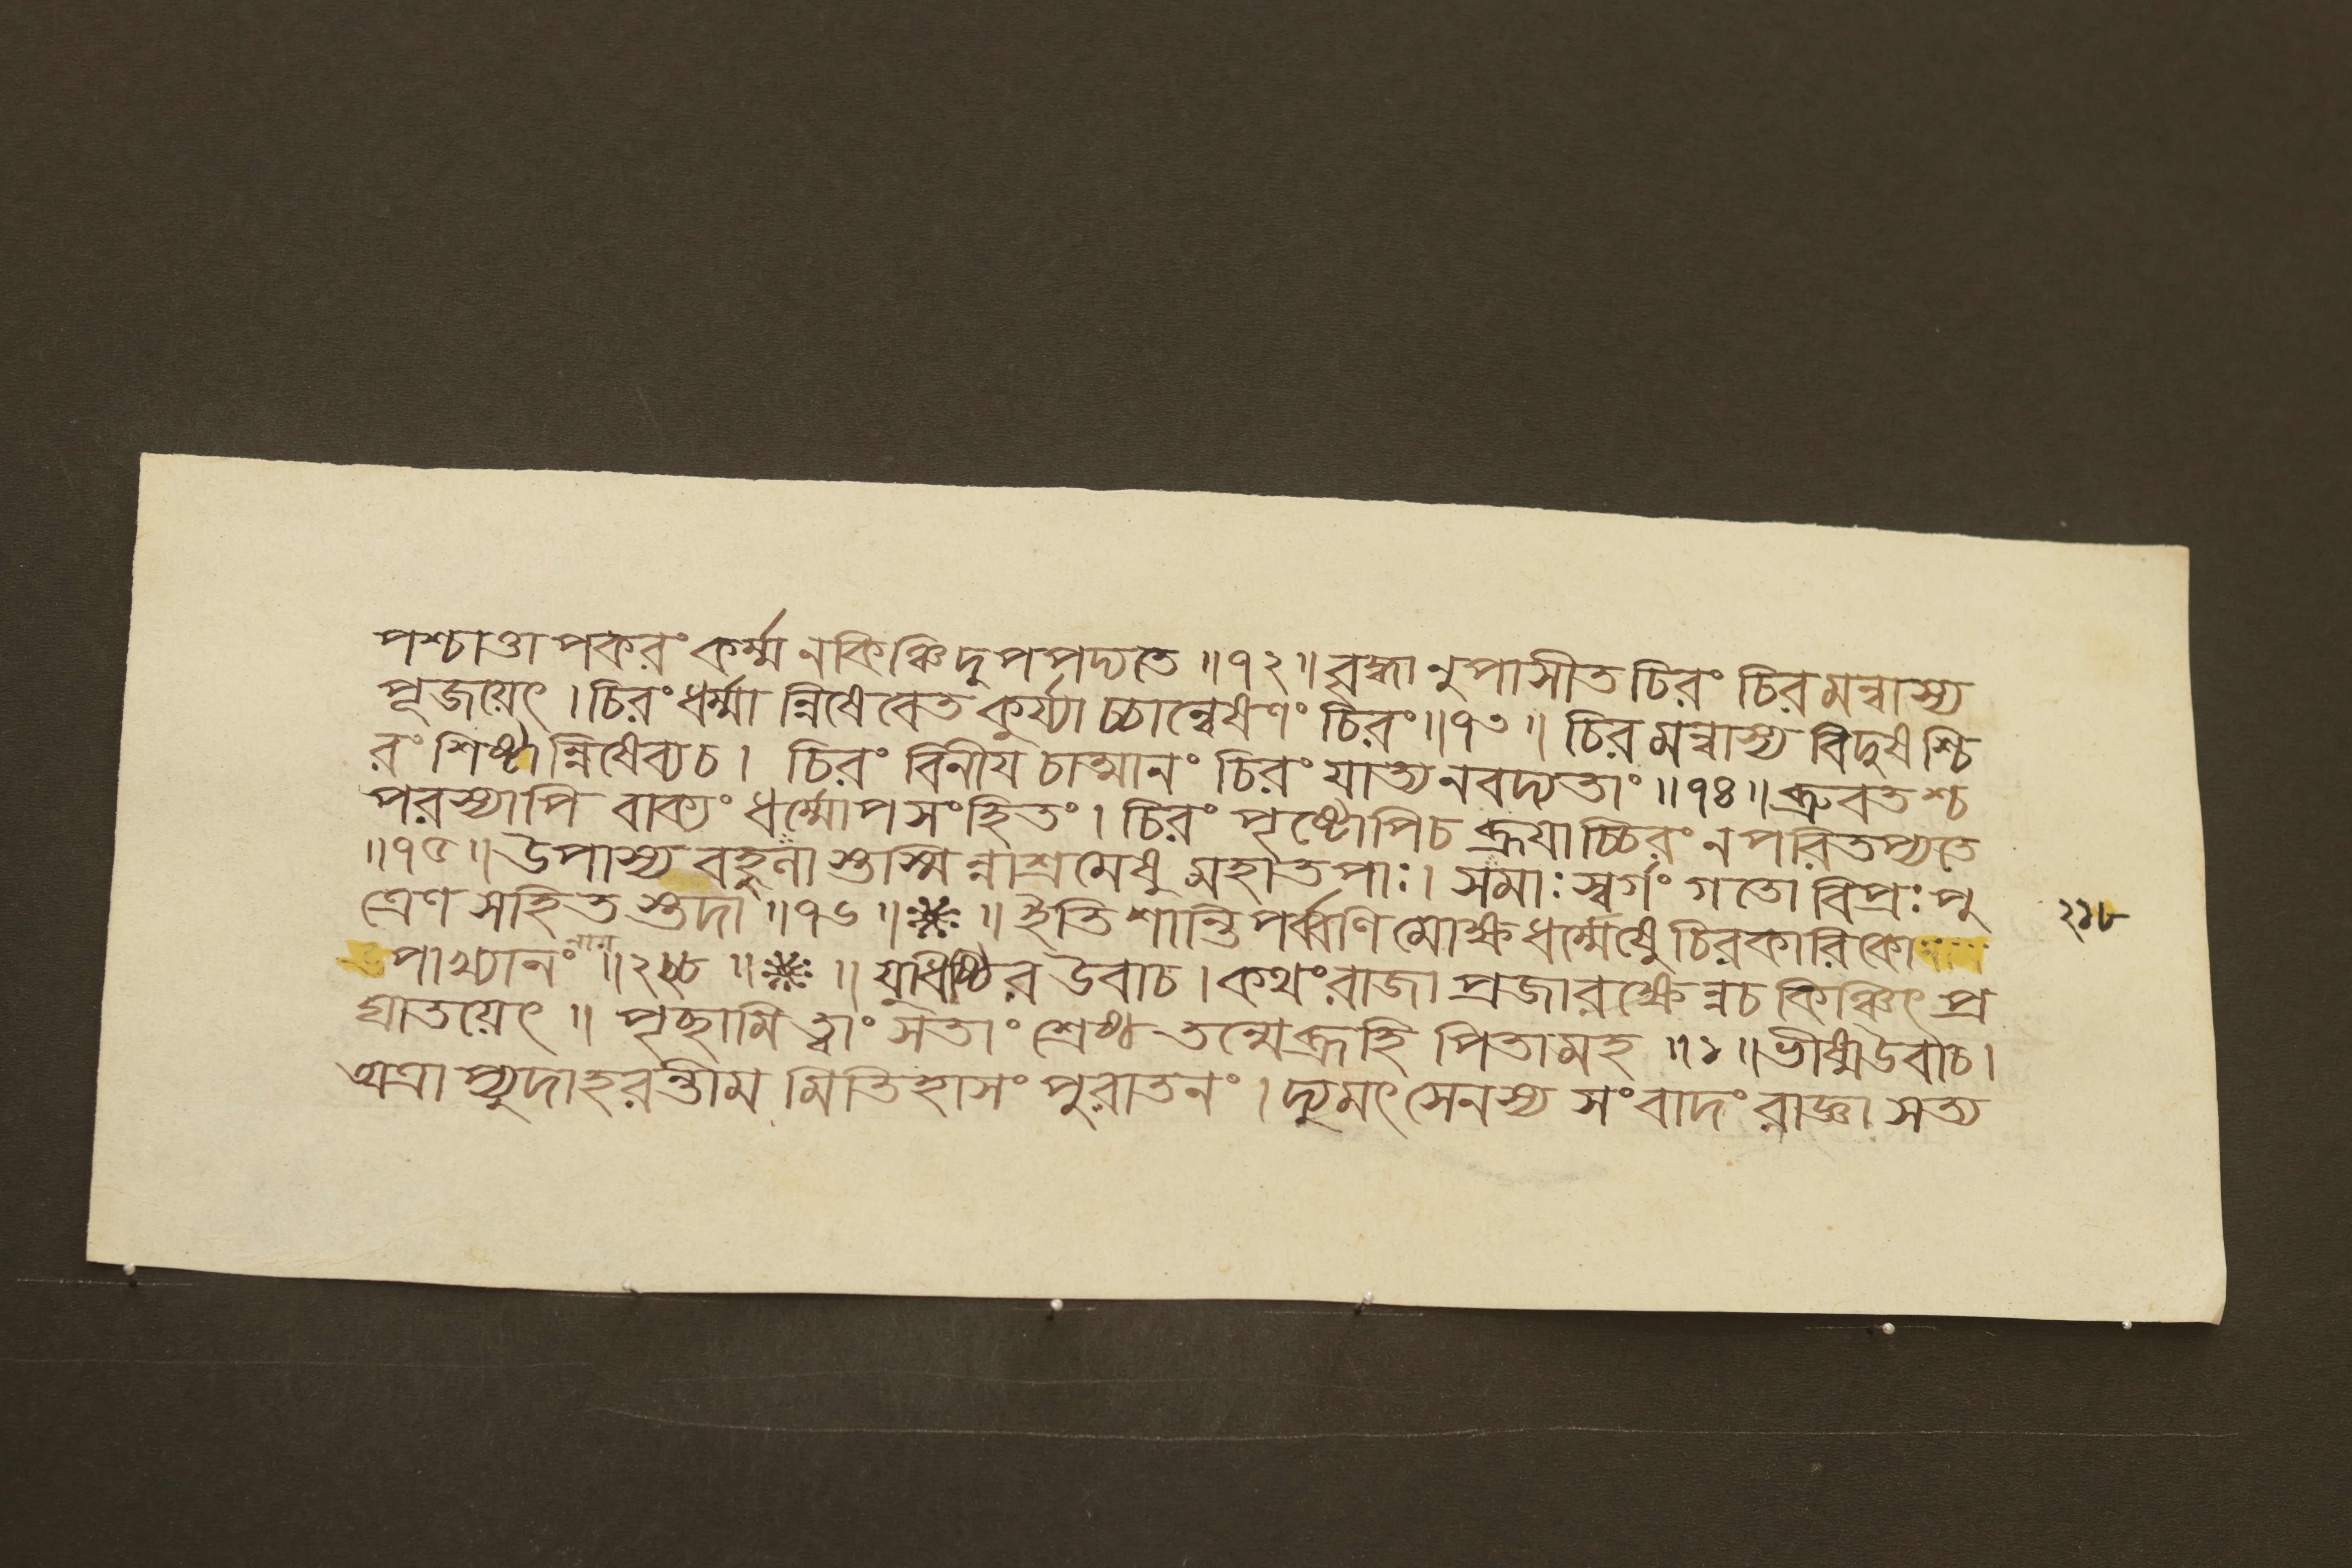 পশ্চাত্তাপকরং কর্ম্ম নকিঞ্চিদুপপদ্যতে ॥৭২॥ ব্রহ্মানুপাসীত চিরং চিরমন্বাস্য
পূজয়েৎ । চিরং ধর্ম্মান্নিষেবেত কুর্য্যাচ্চান্বেষণং চিরং ॥৭৩॥ চিরমন্বাস্য বিদুষশ্চি
রং শিষ্টান্নিষেব্যচ । চিরং বিনীয চাত্মানং চিরং যাত্যনবদ্যতাং ॥৭৪॥ ব্রুবতশ্চ
পরস্যাপি বাক্যং ধর্ম্মোপসংহিতং । চিরং পৃষ্টোপিচ ব্রূযাচ্চিরং ন পরিতপ্যতে
॥৭৫॥ উপাস্য বহুলা স্তস্মিন্নাশ্রমেষু মহাতপাঃ । সমাঃ স্বর্গং গতো বিপ্রঃ পু
ত্রেণ সহিত স্তদা ॥৭৬॥ ❋ ॥ ইতি শান্তিপর্ব্বণি মোক্ষধর্ম্মেষু চিরকারিকো
পাখ্যানং ॥ ॥ ❋ ॥ যুধিষ্ঠির উবাচ । কথং রাজা প্রজা রক্ষেন্নচ কিঞ্চিৎ প্র
ঘাতয়েৎ ॥ পৃচ্ছামি ত্বাং সতাং শ্রেষ্ঠ তন্মেব্রূহি পিতামহ ॥১॥ ভীষ্মউবাচ ।
অত্রাপ্যুদাহরন্তীম মিতিহাসং পুরাতনং । দ্যুমৎসেনস্য সংবাদং রাজ্ঞা সত্য
২১৮